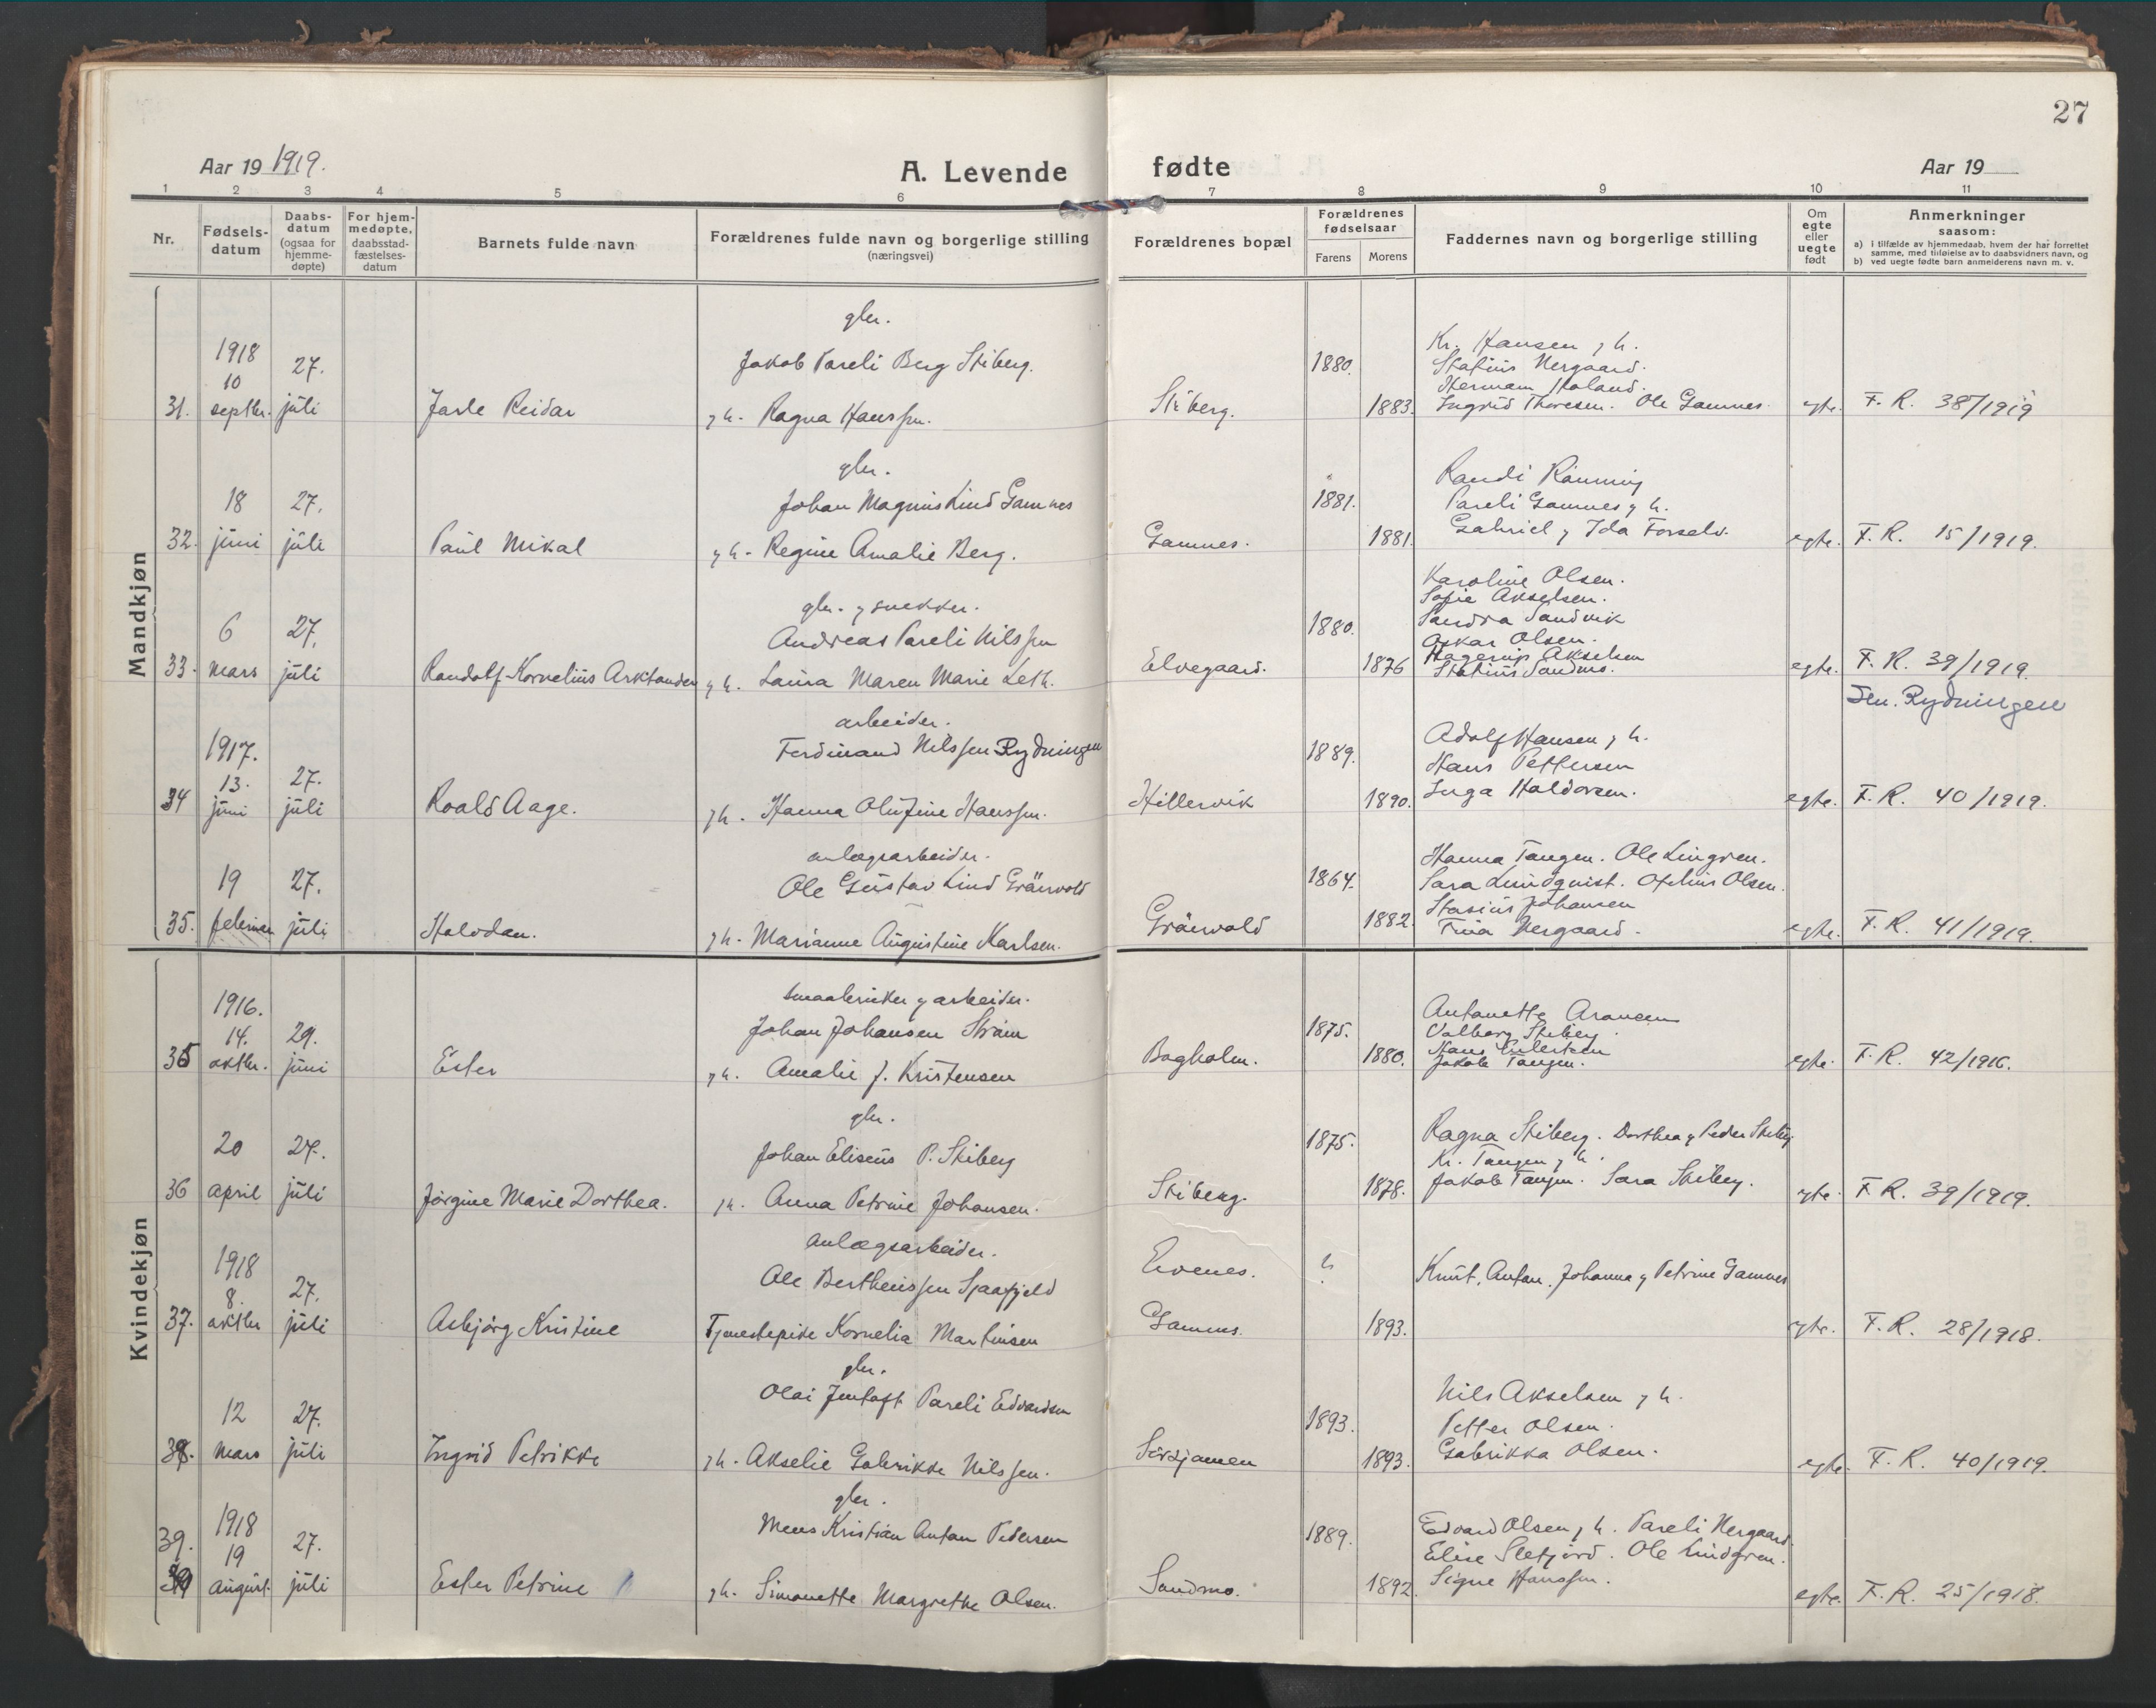 27
Aar 19 1919.
A. Levende fødte
Aar 19
1 2 3 4 5 6 7 8 9 10 11
Nr.
Fødsels-
datum
Daabs-
datum
(ogsaa for
hjemme-
døpte)
For hjem-
medøpte,
daabsstad-
fæstelses-
datum
Barnets fulde navn
Forældrenes fulde navn og borgerlige stilling
(næringsvei)
Forældrenes bopæl
Forældrenes
fødselsaar
Farens Morens
Faddernes navn og borgerlige stilling
Om
egte
eller
uegte
født
Anmerkninger
saasom:
a) i tilfælde av hjemmedaab, hvem der har forrettet
samme, med tilføielse av to daabsvidners navn, og
b) ved uegte fødte barn anmelderens navn m. v.
Mandkjøn
gbr.
1918 27. Jakob Pareli Berg Skiberg. 1880. Kr. Hansen g h.
10 Statius Nergaard.
Herman Haland.
31. septbr. juli Jarle Reidar g h. Ragna Hanssen. Skiberg. 1883. Ingrid Thoresen. Ole Gamnes. egte. F. R. 38/1919
gbr.
18 27. Johan Magnus Lind Gamnes 1881. Randi Rønning
Pareli Gamnes g h.
32. juni juli Paul Mikal g h. Regine Amalie Berg. Gamnes. 1881. Gabriel g Ida Forselv. egte. F. R. 15/1919.
gbr. g snekker.
Karoline Olsen.
Sofie Akselsen.
6 27. Andreas Pareli Nilssen 1880. Sandra Sandvik
Oskar Olsen.
Hagerup Akselsen
33. mars juli Randolf Kornelius Arktander g h. Laura Maren Marie Leth. Elvegaard. 1876 Statius Sandmo. egte. F. R. 39/1919.
Sen. Rydningen
arbeider.
1917. Ferdinand Nilssen Rydningen 1889. Adolf Hansen g h.
13. 27. Hans Pettersen
34 juni juli Roald Aage. g h. Hanna Olufine Hanssen. Hillervik 1890. Inga Haldorsen. egte. F. R. 40/1919.
anlægsarbeider.
Hanna Tangen. Ole Lingren.
19 27. Ole Gustav Lind Grønvold 1864. Sara Lundquist. Ofelius Olsen.
Stasius Johansen
35. februar juli Halvdan. g h. Marianne Augustine Karlsen. Grønvold 1882. Tina Nergaard. egte. F. R. 41/1919.
Kvindekjøn
smaabruker g arbeider.
1916. Antonette Aronsen
14. 29. Johan Johansen Strøm 1875. Valborg Skiberg.
35 oktbr. juni Ester g h. Amalie J. Kristensen Bogholm. 1880. Jakob Tangen. egte. F. R. 42/1916.
gbr.
20 27. Johan Eliseus P. Skiberg 1875. Ragna Skiberg. Dorthea g Peder Skiberg
Kr. Tangen g h.
36 april juli Jørgine Marie Dorthea. g h. Anna Petrine Johansen. Skiberg. 1878. Jakob Tangen. Sara Skiberg. egte. F. R. 39/1919.
anlægsarbeider.
1918
8. 27. Ole Bertheussen Sjaafjeld Evenes. ? Knut, Anton, Johanna g Petrine Gamnes
37. oktbr juli Asbjørg Kristine Tjenestepike Kornelia Martinsen Gamnes. 1893. egte. F. R. 28/1918.
gbr.
12 27. Olai Jentoft Pareli Edvardsen 1893. Nils Akselsen g h.
Petter Olsen.
38. mars juli Ingrid Petrikke g h. Akselie Gabrikke Nilssen. 1893. Gabrikka Olsen. egte. F. R. 40/1919.
gbr.
1918
39. 19 27. Mons Kristian Anton Pedersen 1889. Edvard Olsen g h. Pareli Nergaard.
Elise Sletjord. Ole Lindgren.
august. juli Ester Petrine g h. Simonette Margrethe Olsen. Sandmo. 1892. Signe Hanssen. egte. F. R. 25/1918.